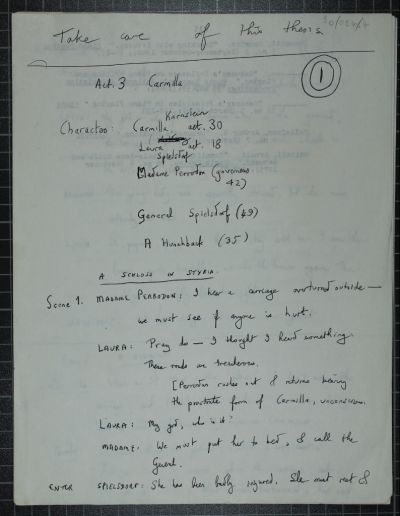 Take care of this thesis
1
Act. 3 Carmilla
Characters: Carmilla Karnstein aet. 30
Laura Spielsdorf aet. 18
Madame Perrodon (governess
42)
General Spielsdorf (49)
A Hunchback (35)
A SCHLOSS IN STYRIA.
Scene 1. MADAME PERRODON: I hear a carriage overturned outside —
we must see if anyone is hurt.
LAURA: Pray do — I thought I heard something.
These roads are treacherous.
[Perrodon rushes out & returns bearing
the prostrate form of Carmilla, unconscious.
LAURA: My god, who is it?
MADAME: We must put her to bed, & call the
General.
ENTER SPIELSDORF: She has been badly injured. She must rest &